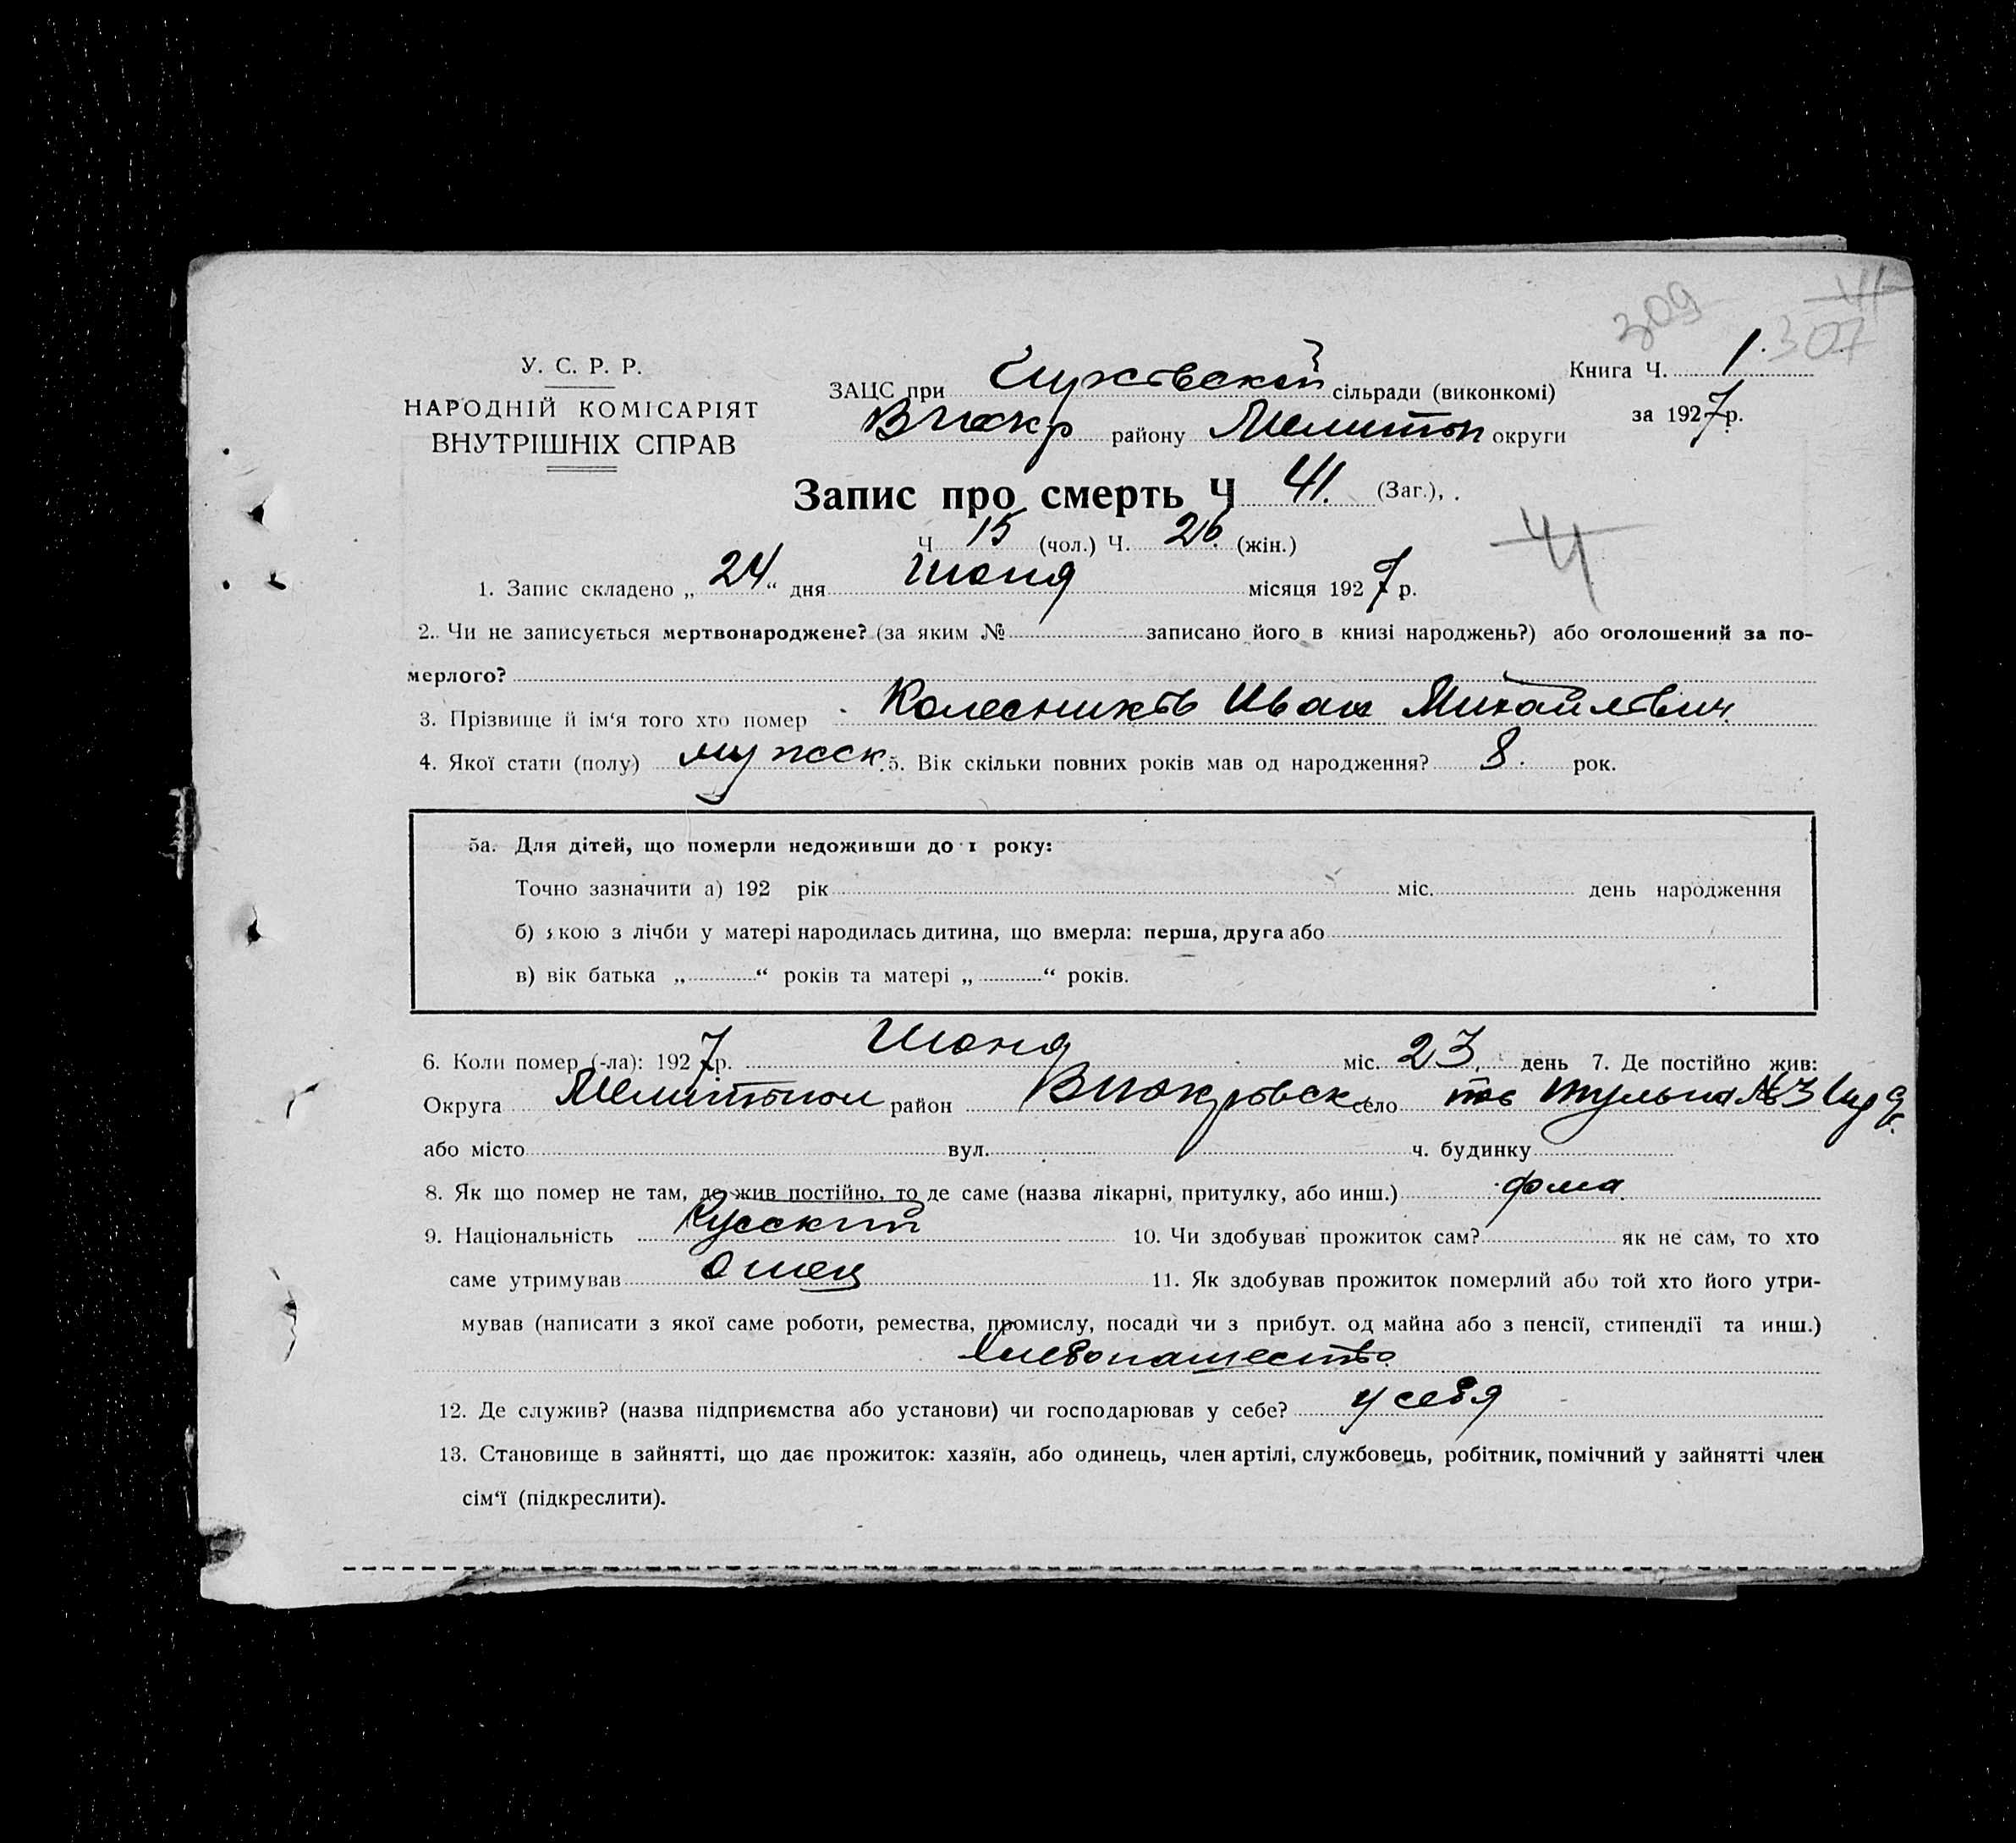 309
41
307
У. С. Р. Р.
НАРОДНІЙ КОМІСАРІЯТ
ВНУТРІШНІХ СПРАВ
ЗАЦС при сільради (виконкомі)
району Мелитоп округи
Книга Ч. 1.
за 1927 р.
Запис про смерть Ч 41. (Заг.),
Ч 15 (чол.) Ч. 26. (жін.)
41
1. Запис складено „24“ дня Июня місяця 1927 р.
2. Чи не записується мертвонароджене? (за яким № записано його в книзі народжень?) або оголошений за по-
мерлого?
3. Прізвище й ім‘я того хто помер Колесников Иван Михайлович
4. Якої стати (полу) мужск. 5. Вік скільки повних років мав од народження? 8. рок.
5а. Для дітей, що померли недоживши до 1 року:
Точно зазначити а) 192 рік міс. день народження
б) якою з лічби у матері народилась дитина, що вмерла: перша, друга або
в) вік батька „ “ років та матері „ “ років.
6. Коли помер (-ла): 1927 р. Июня міс. 23. день 7. Де постійно жив:
Округа район село №3
або місто вул. ч. будинку
8. Як що помер не там, де жив постійно, то де саме (назва лікарні, притулку, або инш.) дома
9. Національність Русский 10. Чи здобував прожиток сам? як не сам, то хто
саме утримував Отец 11. Як здобував прожиток померлий або той хто його утри-
мував (написати з якої саме роботи, ремества, промислу, посади чи з прибут. од майна або з пенсії, стипендії та инш.)
Хлебопашество
12. Де служив? (назва підприємства або установи) чи господарював у себе? у себя
13. Становище в зайнятті, що дає прожиток: хазяїн, або одинець, член артілі, службовець, робітник, помічний у зайнятті член
сім‘ї (підкреслити).